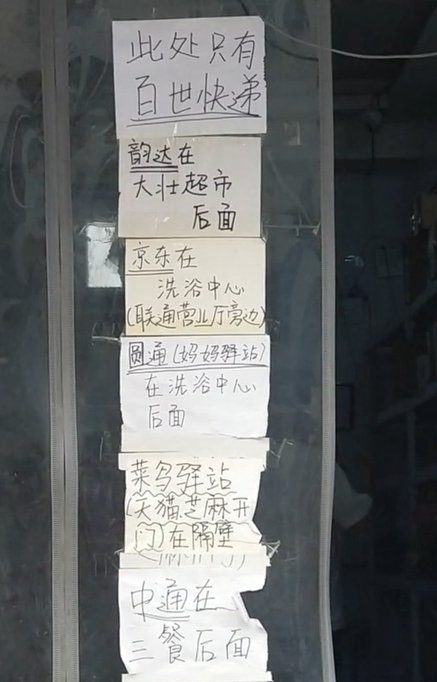 此处只有
百世快递
韵达在
大壮超市
后面
京东在
洗浴中心
(联通营业厅旁边)
圆通(妈妈驿站)
在洗浴中心
后面
菜鸟驿站
(天猫芝麻开
门)在隔壁
中通在
三餐后面